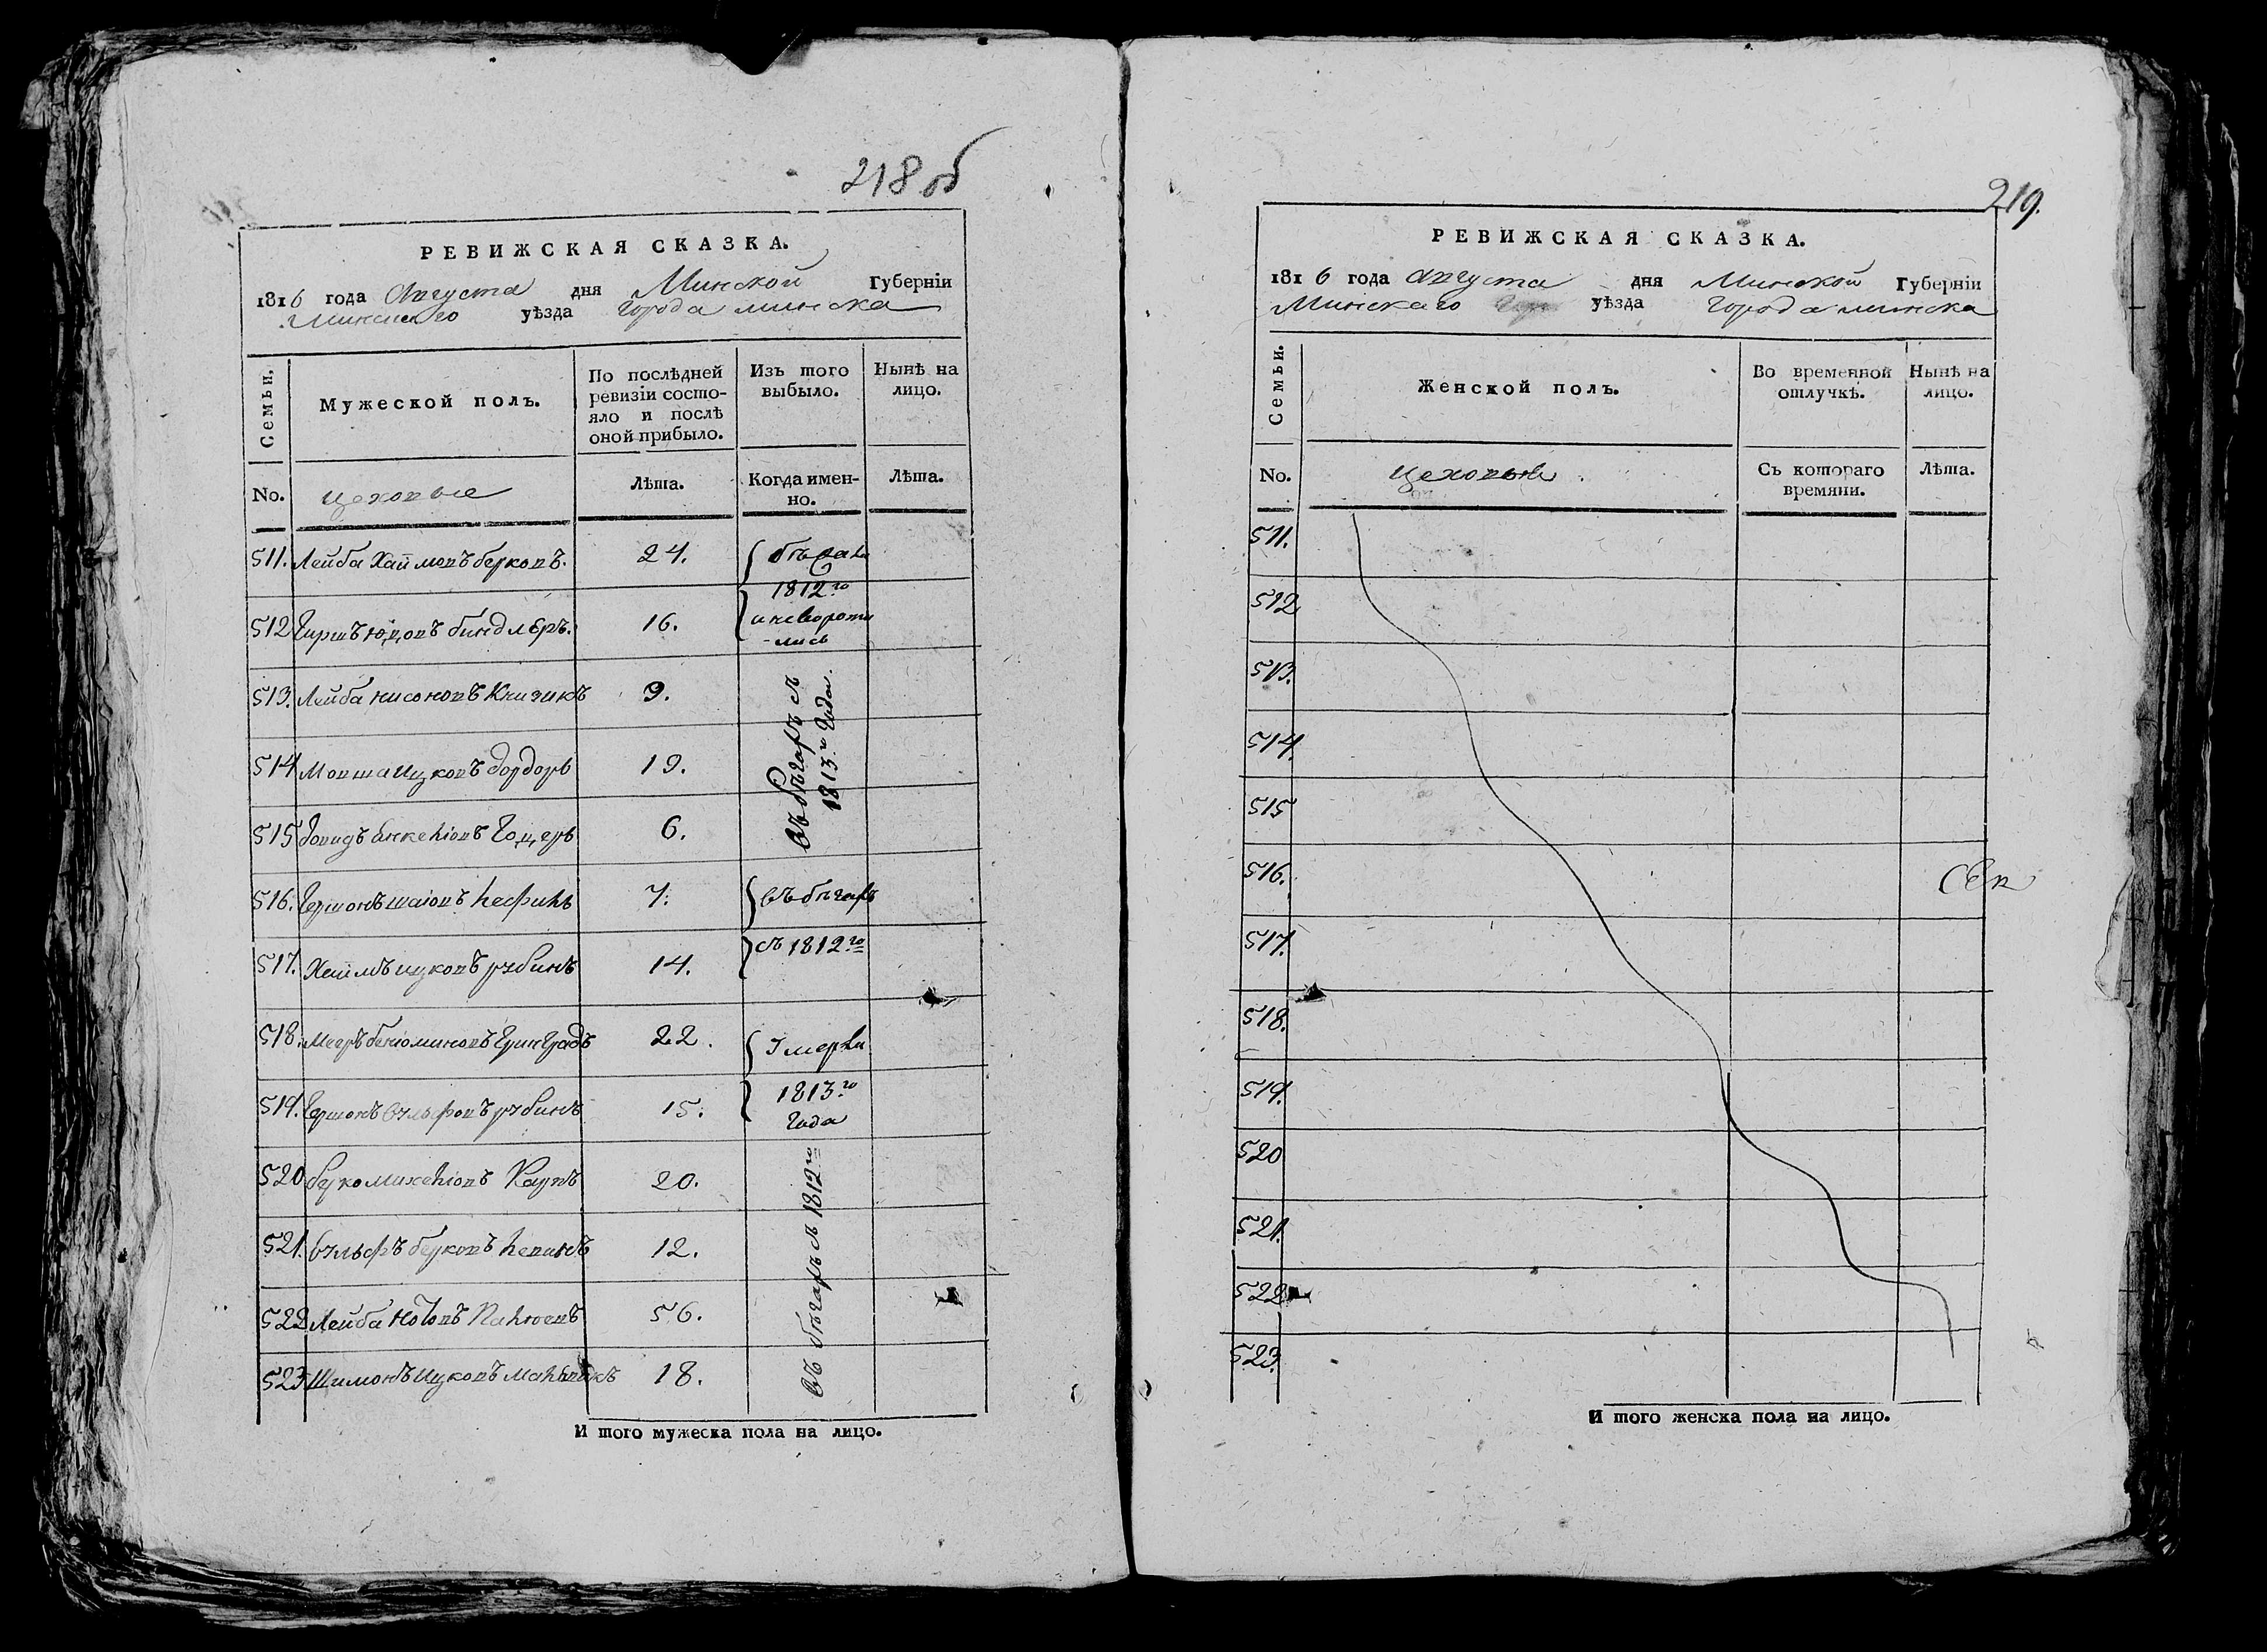 218 об
РЕВИЖСКАЯ СКАЗКА.
1816 года Августа дня Минской Губерніи
Минскаго уѣзда города минска
Семьи.
Мужеской полъ.
По послѣдней ревизіи состо-
яло и послѣ
оной прибыло.
Изъ того выбыло.
Нынѣ на лицо.
No.
цеховые
Лѣта.
Когда имен-
но.
Лѣта.
511. Лейба Хаймовъ берковъ. 24.
512 Гиршъ юдовъ биндлеръ. 16.
бѣжали
1812го
и неворотились
513. Лейба нисоновъ Книзикъ 9.
514 Мовша Ицковъ дордоръ 19.
515 довидъ Янкеліовъ 6.
въ бѣгахъ съ
1813го года.
516. Гершонъ шаіовъ 7.
517. Хаимъ ицковъ рубинъ 14.
въ бѣгахъ
съ 1812го
518. Мееръ беніоминовъ 22.
519. Гершонъ вульфовъ рубинъ 15.
Умерли
1813го
года
520 берко михеліовъ 20.
521. вульфъ берковъ левинъ 12.
522 Лейба 56.
523 Шимонъ Ицковъ 18.
въ бѣгахъ съ 1812го
И того мужеска пола на лицо.
219.
РЕВИЖСКАЯ СКАЗКА.
1816 года Августа дня Минской Губерніи
Минскаго уѣзда города минска
Семьи.
Женской полъ.
Во временной
отлучкѣ.
Нынѣ на
лицо.
No.
цеховые
Съ котораго
времяни.
Лѣта.
511.
512
513.
514.
515
516.
517.
518.
519.
520
521.
522
523.
И того женска пола на лицо.